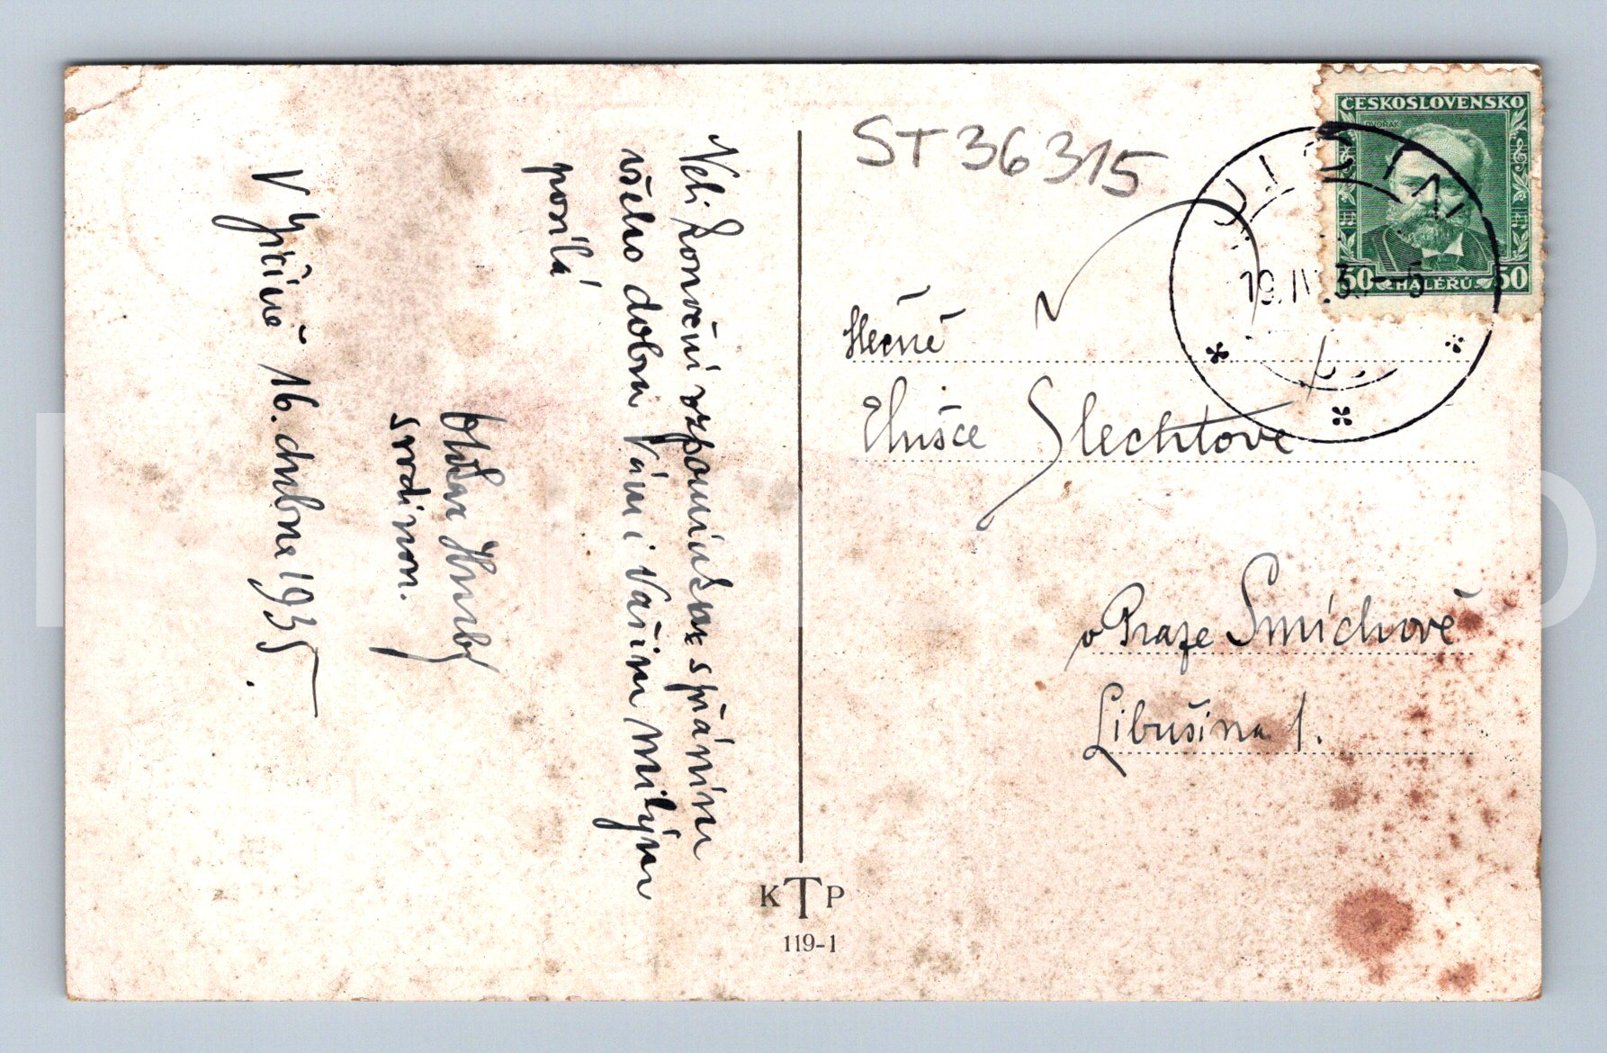 Velikonoční vzpomínku s přáním
všeho dobra Vám i Vašim milým
posílá
Otakar Hrubý
s rodinou.
V Jičíně 16. dubna 1935.
ST 36315
ČESKOSLOVENSKO
DVOŘÁK
50 HALÉŘŮ 50
19.IV.35-5
Slečně
Elušce Šlechtové
v Praze Smíchově
Libušina 1.
KTP
119-1